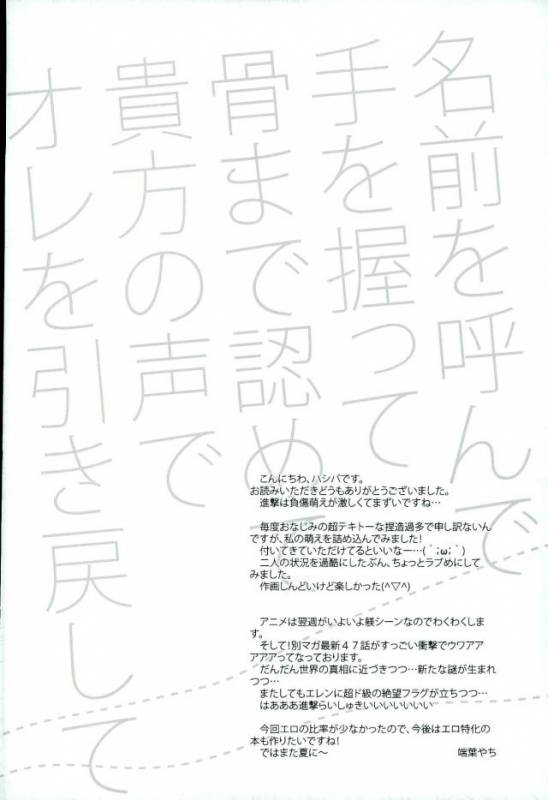 名前を呼んで
手を握って
骨まで認めて
貴方の声で
オレを引き戻して
こんにちわ、ハシバです。
お読みいただきどうもありがとうございました。
進撃は負傷萌えが激しくてまずいですね…
毎度おなじみの超テキトーな捏造過多で申し訳ないん
ですが、私の萌えを詰め込んでみました!
付いてきていただけてるといいなー…(´;ω;｀)
二人の状況を過酷にしたぶん、ちょっとラブめにして
みました。
作画しんどいけど楽しかった(^▽^)
アニメは翌週がいよいよ躾シーンなのでわくわくしま
す。
そして!別マガ最新47話がすっごい衝撃でウワアア
アアアってなっております。
だんだん世界の真相に近づきつつ…新たな謎が生まれ
つつ…
またしてもエレンに超ド級の絶望フラグが立ちつつ…
はあああ進撃らいしゅきいいいいいい
今回エロの比率が少なかったので、今後はエロ特化の
本も作りたいですね!
ではまた夏に～
端葉やち